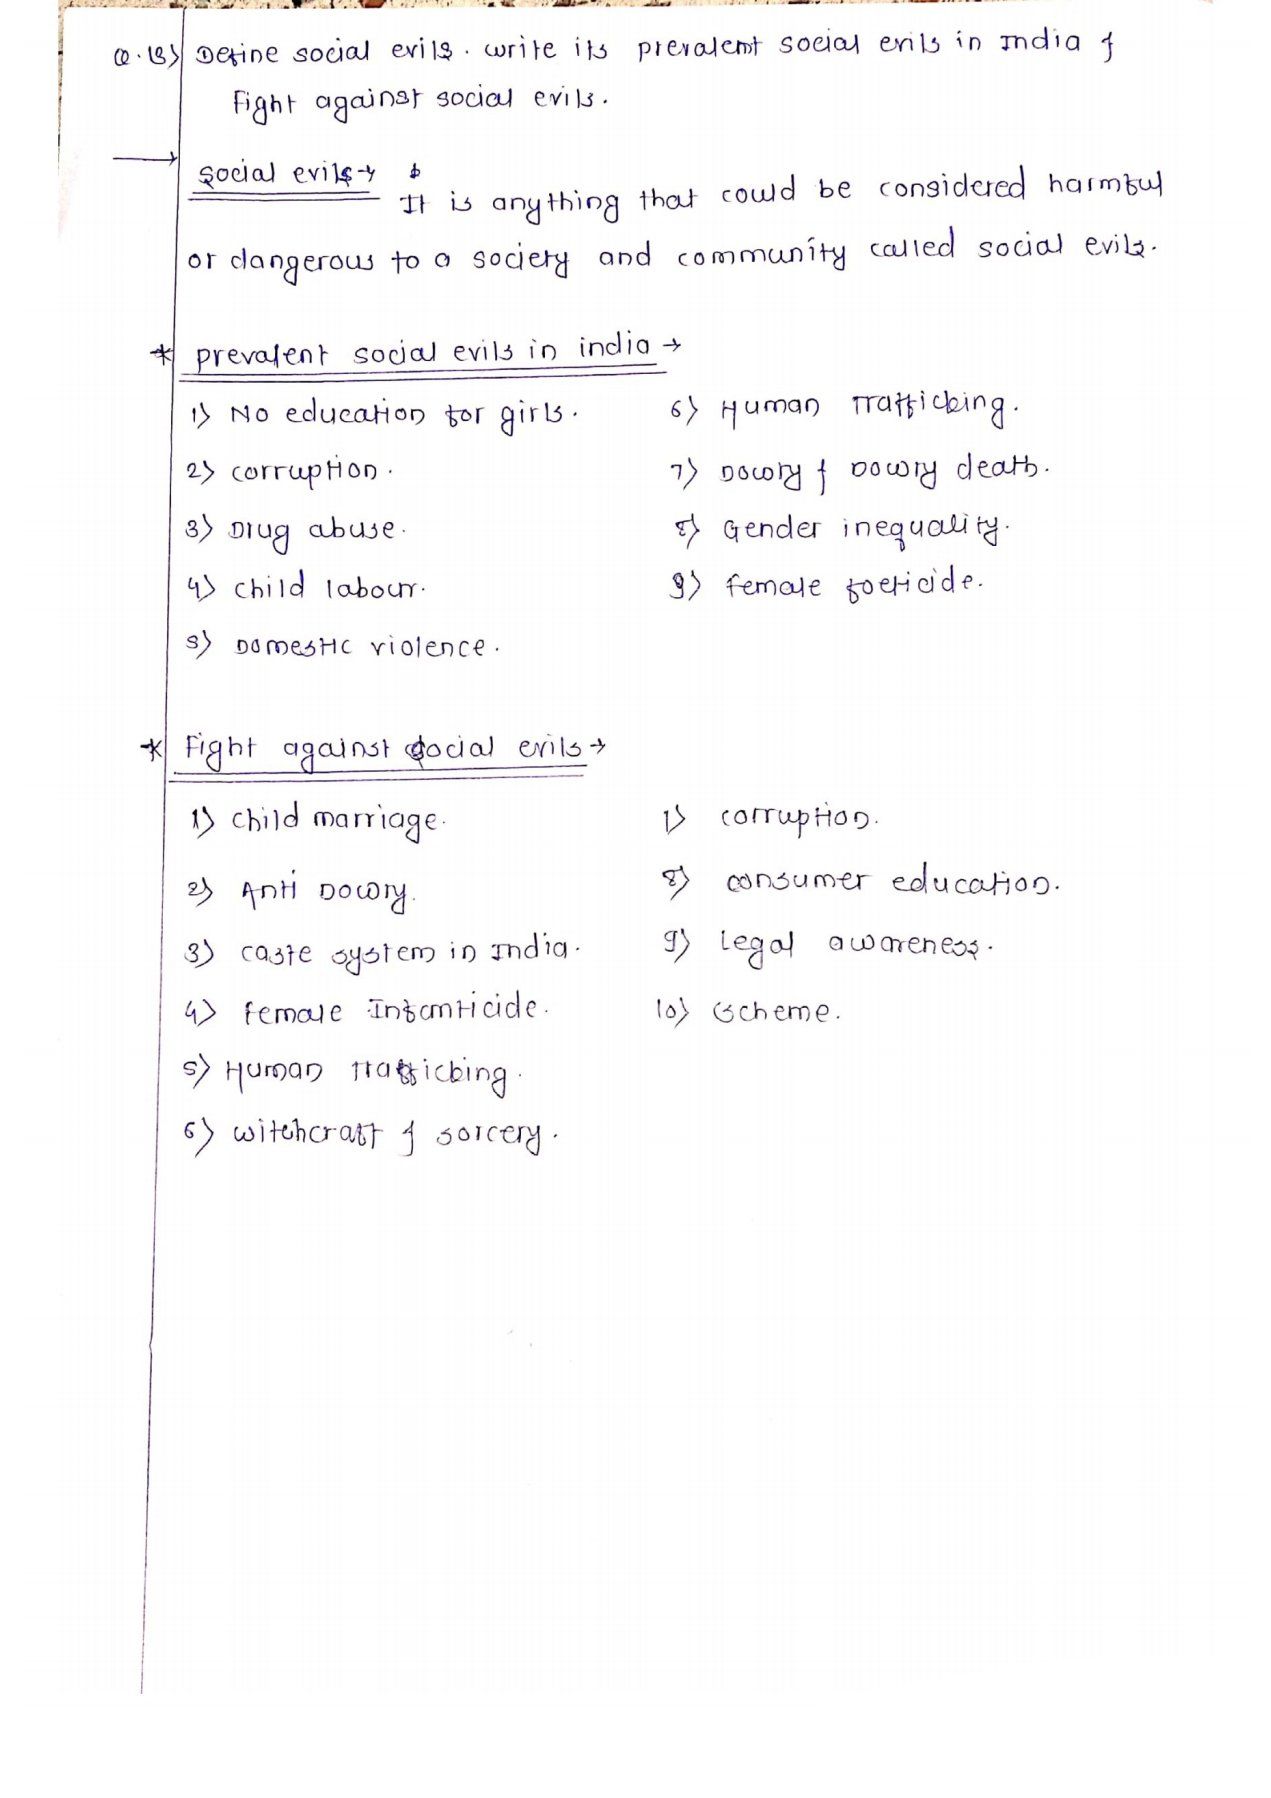 Q.13) Define social evils. write its prevalent social evils in India &
Fight against social evils.
social evils→
It is anything that could be considered harmful
or dangerous to a society and community called social evils.
* prevalent social evils in india →
1) No education for girls.
2) corruption.
3) Drug abuse.
4) child labour.
5) Domestic violence.
6) Human Trafficking.
7) Dowry & Dowry death.
8) Gender inequality.
9) female foeticide.
* Fight against social evils→
1) child marriage.
2) Anti Dowry.
3) caste system in India.
4) female Infanticide.
5) Human Trafficking.
6) witchcraft & sorcery.
1) corruption.
8) consumer education.
9) Legal awareness.
10) Scheme.